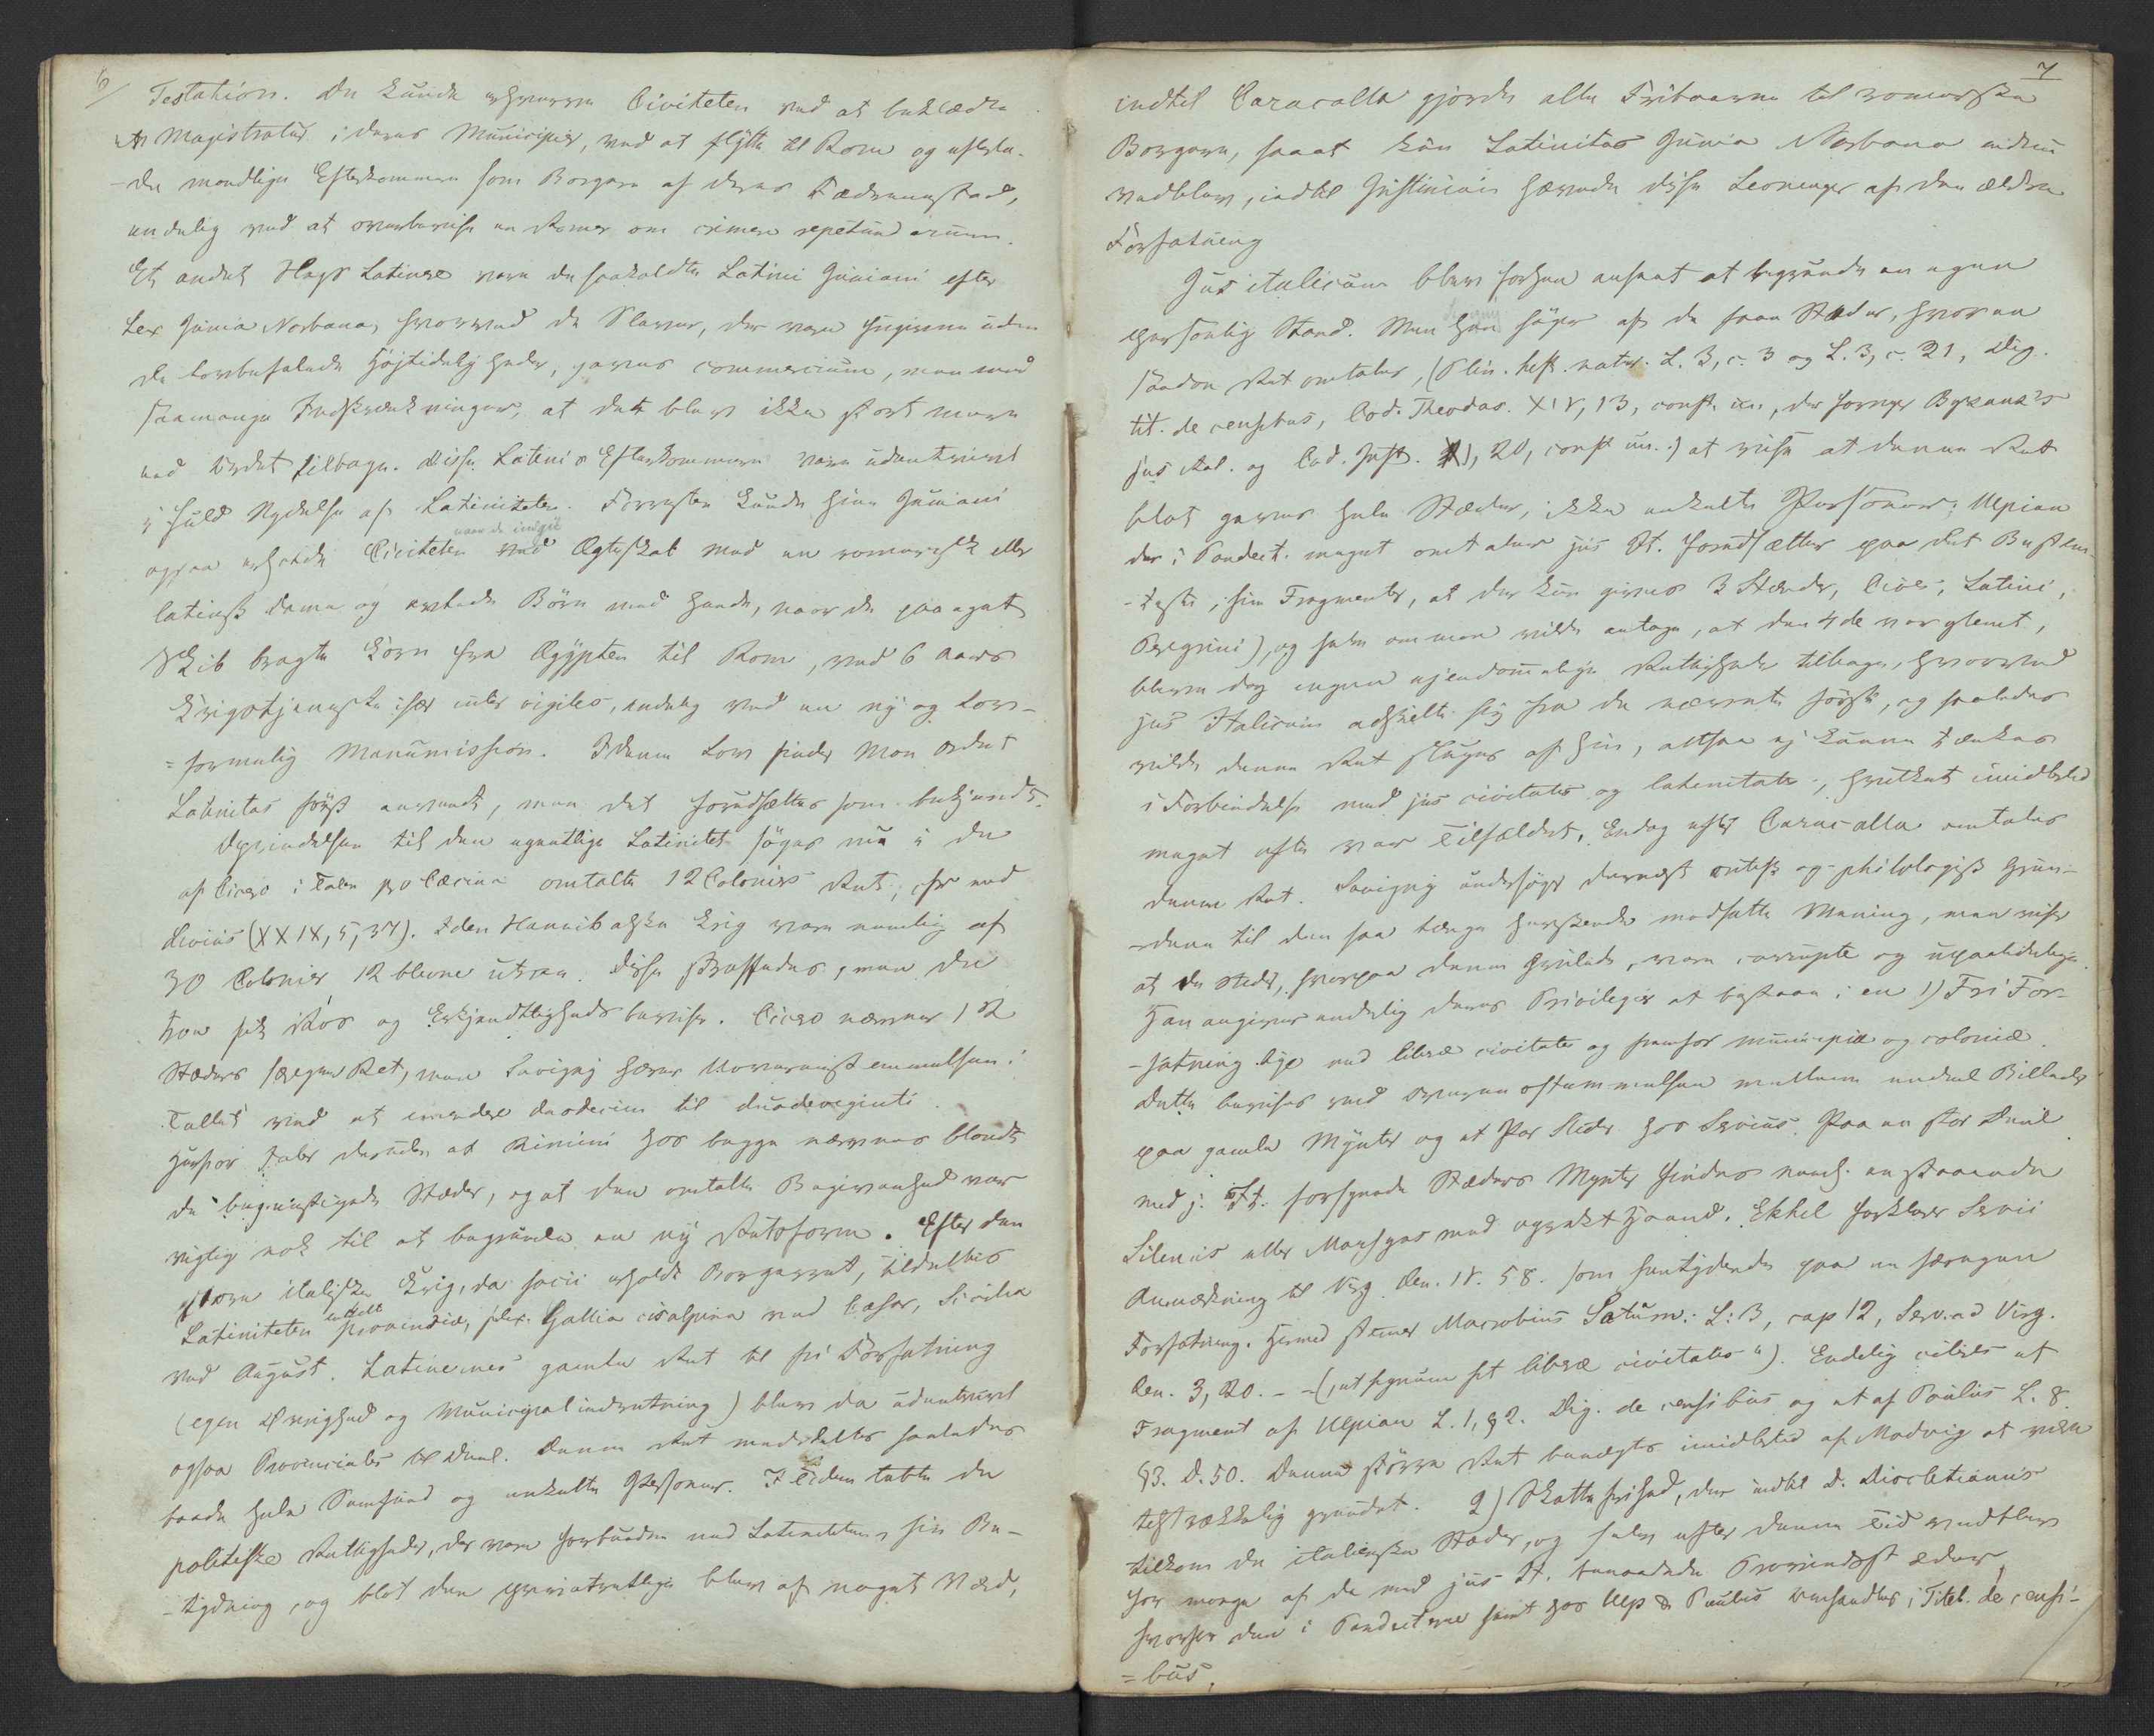 6/
Testation. De kunde erhverve Civiteten ved at beklæde
et Magistratur i deres Municipier, ved at flytte til Rom og efterla-
-de mandlige Efterkommere som Borgere af deres Fædrenestad,
endelig ved at overbevise en Romer om crimen repetundarum.
Et andet Slags Latinere vare de saakaldte Latini Juniani efter
Lex Junia Norbana, hvorved de Slaver, der vare frigivne uden
de lovbefalede Højtideligheder, gaves commercium, men med
saamange Indskrænkninger, at det blev ikke stort mere
end Ordet tilbage. Disse Latini's Efterkommere vare udentvivl
i fuld Nydelse af Latiniteten. Forresten kunde hine Juniani
naar de indgik
ogsaa erholde Civiteten ved Ægteskab med en romersk eller
latinsk Dame og avlede Børn med hende, naar de paa eget
Skib bragte Korn fra Ægypten til Rom, ved 6 Aars
Krigstjeneste især inter vigiles, endelig ved en ny og lov-
=formelig Manumission. I denne Lov finder Man Ordet
Latinitas først anvendt, men det forudsættes som bekjendt.
Oprindelsen til den egentlige Latinitet søges nu i den
af Cicero i Talen pro Cæcina omtalte 12 Coloniers Ret, cfr med
Livius (XXIX, 5, 37). I den Hannibalske Krig vare nemlig af
30 Colonier 12 blevne utroe. Disse straffedes, men de
troe fik Roes og Erkjendtlighedsbeviser. Cicero nævner 12
Stæders særegen Ret, men Savigny hæver Uoverensstemmelsen i
Tallet ved at emendere duodecim til duodeviginti.
Herfor taler desuden at Rimini hos begge nævnes blandt
de begunstigede Stæder, og at den omtalte Begivenhed var
vigtig nok til at begrunde en ny Retsform. Efter den
store italiske Krig, da socii erholdt Borgerret, tildeltes
Latiniteten endelt Provinsier, f.Ex. Gallia cisalpina ved Cæsar, Sicilia
ved August. Latinernes gamle Ret til fri Forfatning
(egen Øvrighed og Municipalindretning) blev da udentvivl
ogsaa Provinciales til Deel. Denne Ret meddeltes saaledes
baade hele Samfund og enkelte Personer. I Tiden tabte de
politiske Rettigheder, der vare forbundne med Latiniteten, sin Be-
-tydning, og blot den privatretlige blev af noget Værd,
7
indtil Caracalla gjorde alle Fribaarne til romerske
Borgere, saaat kun Latinitas Junia Norbana endnu
vedblev, indtil Justinian hævede disse Levninger af den ældre
Forfatning
Jus italicum blev forhen anseet at begrunde en egen
personlig Stand. Men han søger af de faae Stæder, hvor en
saadan Ret omtales, (Plin. hist. natur. L. 3, c. 3 og L. 3, c. 21, Dig.
tit. de censibus, Cod. Theodos. XIV, 13, const. un., der fornyer Byzanz's
jus ital. og Cod. Just. XI, 20, const un.) at vise at denne Ret
blot gaves hele Stæder, ikke enkelte Personer; Ulpian
der i Pandect. meget omtaler jus It. forudsætter paa det Bestem-
-teste i sin Fragmenter, at der kun gives 3 Stænder, Cives, Latini,
Peregrini), og selv om man vilde antage, at den 4de var glemt,
bleve dog ingen ejendommelige Rettigheder tilbage, hvorved
jus Italicum adskilte sig fra de nævnte først, og saaledes
vilde denne Ret sluges af hin, altsaa ej kunne tænkes
i Forbindelse med jus civitatis og latinitatis, hvilket imidlertid
meget ofte var Tilfældet. Endog efter Caracalla omtales
denne Ret. Savigny undersøger dernæst critisk og philologisk Grun-
-dene til den saa længe herskende modsatte Mening, men viser
at de Steder, hvorpaa denne hvilede, vare corrupte og upaalidelige.
Han angiver endelig dens Privilegier at bestaae i en 1) Fri For-
-fatning lige med liberæ civitates og fremfor municipiæ og coloniæ.
Dette bevises ved Overensstemmelsen mellem endeel Billeder
paa gamle Mynter og et Par Steder hos Servius. Paa en stor Deel
med j. It. forsynede Stæders Mynter findes neml. en staaende
Silenus eller Marsyas med oprakt Haand. Ekhel forklarer Servii
Anmærkning til Virg. Æn. IV. 58. som hentydende paa en særegen
Forfatning. Hermed stemer Macrobius Saturn. L: 3, cap 12, Serv. ad Virg.
Æn. 3, 20. - - („ut signum sit liberæ civitatis"). Endelig citeres et
Fragment af Ulpian L. 1, § 2. Dig. de censibus og et af Paulus L. 8.
§3. D. 50. Denne større Ret benægtes imidlertid af Madvig at være
tilstrækkelig grundet. 2) Skattefrihed, der indtil D. Diocletianus
tilkom de italienske Stæder, og selv efter denne Tid vedblev
for mange af de med jus It. benaadede Provindsstæder,
hvorfor den i Pandecterne samt hos Ulp & Paulus omhandles i Titel. de censi-
=bus.